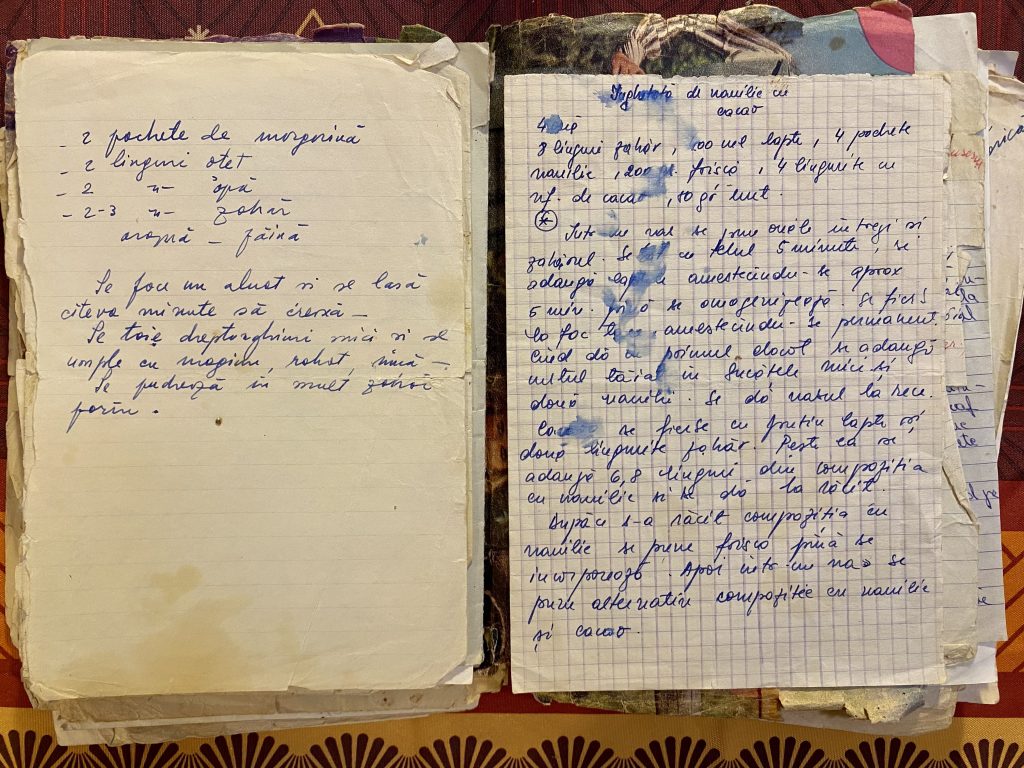 - 2 pachete de margarină
- 2 linguri oțet
- 2 -"- apă
- 2-3 -"- zahăr
aropră - făină
Se face un aluat si se lasă
citeva minute să crească -
Se taie dreptunghiuri mici si se
umple cu magiun, rahat, nucă -
Se pudrează în mult zahăr
farin.
Inghetată de vanilie cu
cacao
4
8 linguri zahăr, 100 ml lapte, 4 pachete
vanilie, 200 gr. frișcă, 4 lingurite cu
vf. de cacao, 50 gr unt.
Intr-un vas se pun ouăle întregi si
zahărul. Se bat cu telul 5 minute, se
adaugă amestecindu-se aprox
5 min. pină se omogenizează. Se fierbe
la foc amestecindu-se permanent.
Cind dă in primul clocot se adaugă
untul tăiat în bucățele mici și
două vanilii. Se dă vasul la rece.
se fierbe cu putin lapte și
două lingurite zahăr. Peste ea se
adaugă 6,8 linguri din compozitia
cu vanilie si se dă la răcit.
După ce s-a răcit compozitia cu
vanilie se pune frișca pînă se
incorporează. Apoi intr-un vas se
pune alternativ compozitie cu vanilie
și cacao.